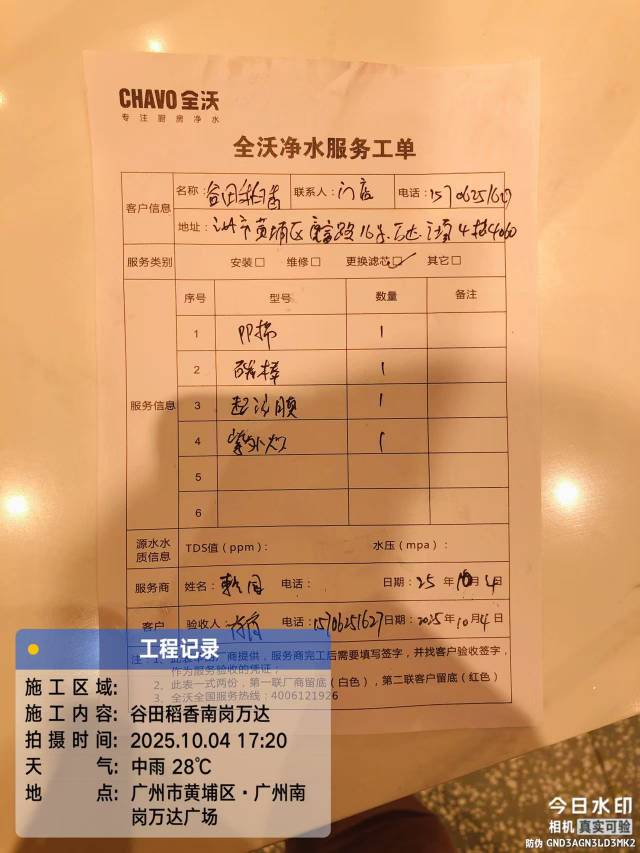 CHAVO 全沃
专注厨房净水
全沃净水服务工单
客户信息 名称: 谷田稻香 联系人: 门店 电话: 15706251627
地址: 广州市黄埔区 路16号万达广场4楼4060
服务类别 安装□ 维修□ 更换滤芯□✓ 其它□
服务信息
序号 型号 数量 备注
1 PP棉 1
2 碳棒 1
3 超滤膜 1
4 紫外灯 1
5
6
源水水质信息 TDS值（ppm）: 水压（mpa）:
服务商 姓名: 电话: 日期: 25年10月4日
客户 验收人: 电话: 15706251627 日期: 2025年10月4日
注: 1、此表单由厂商提供，服务商完工后需要填写签字，并找客户验收签字，
作为服务验收的凭证；
2、此表一式两份，第一联厂商留底（白色），第二联客户留底（红色）
3、全沃全国服务热线: 4006121926
工程记录
施工区域:
施工内容: 谷田稻香南岗万达
拍摄时间: 2025.10.04 17:20
天气: 中雨 28℃
地点: 广州市黄埔区·广州南
岗万达广场
今日水印
相机 真实可验
防伪 GND3AGN3LD3MK2